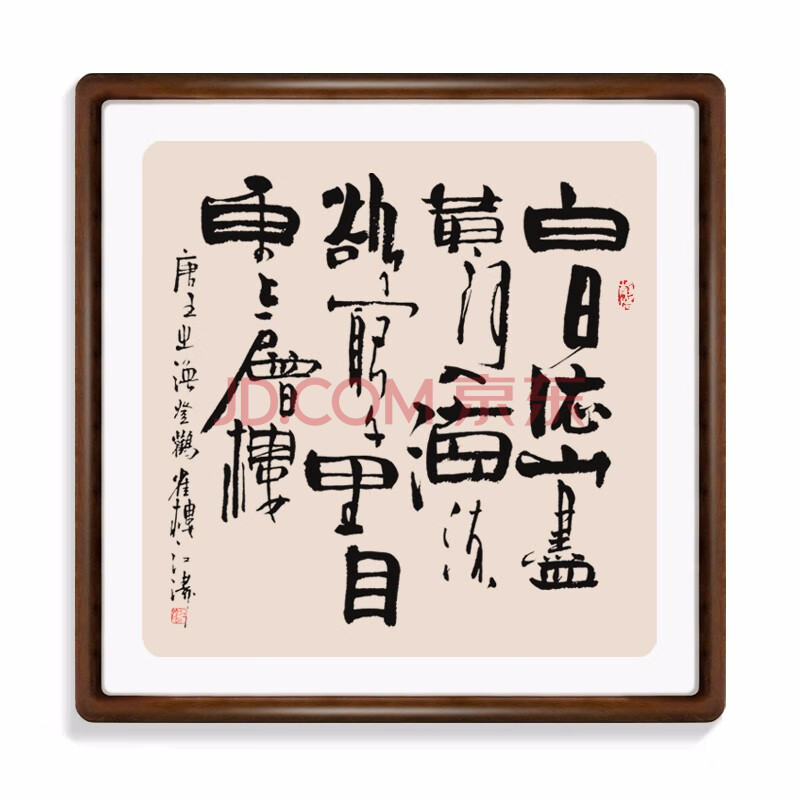 白日依山盡
黄河入海流
欲窮千里目
更上一層樓
唐王之渙登鸛雀樓江
JD.COM 京东